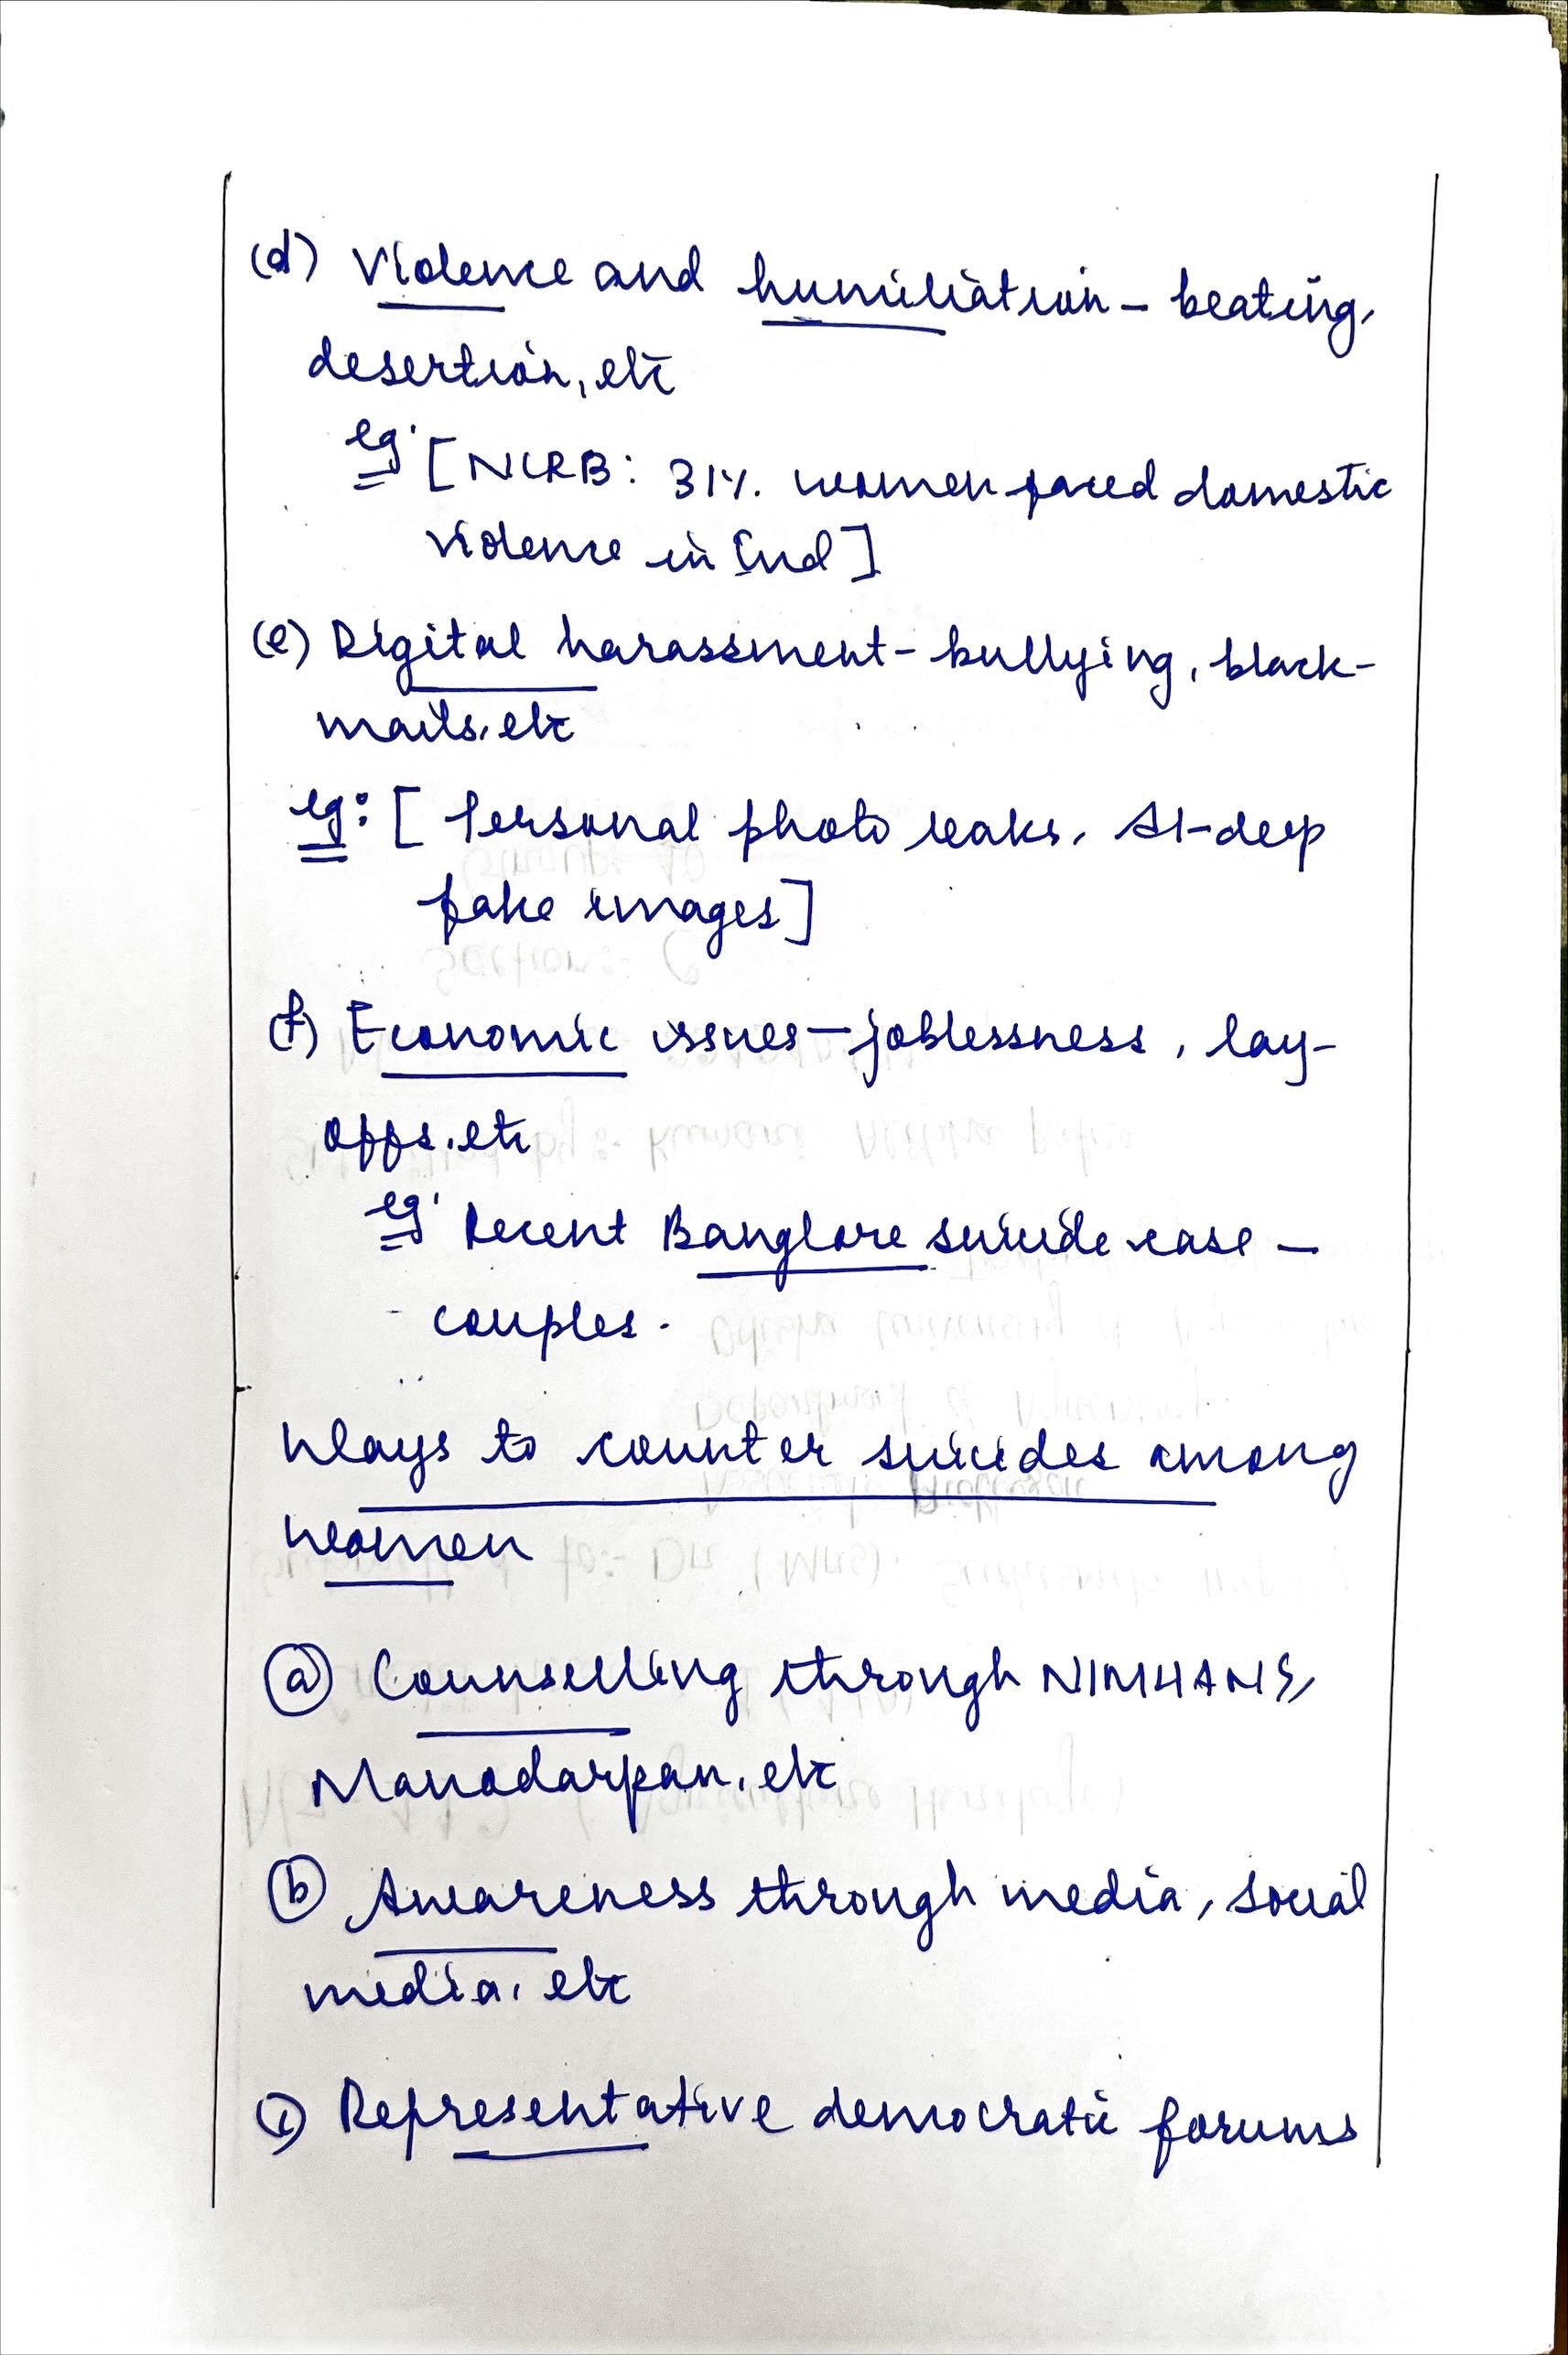 (d) Violence and humiliation - beating,
desertion, etc
eg. [NCRB: 31%. women faced domestic
violence in Ind]
(e) Digital harassment - bullying, black-
mails, etc
eg: [Personal photo leaks, AI-deep
fake images]
(f) Economic issues - joblessness, lay-
offs, etc
eg. Recent Banglore suicide case -
couples.
Ways to counter suicides among
women
(a) Counselling through NIMHANS,
Manodarpan, etc
(b) Awareness through media, social
media, etc
(c) Representative democratic forums